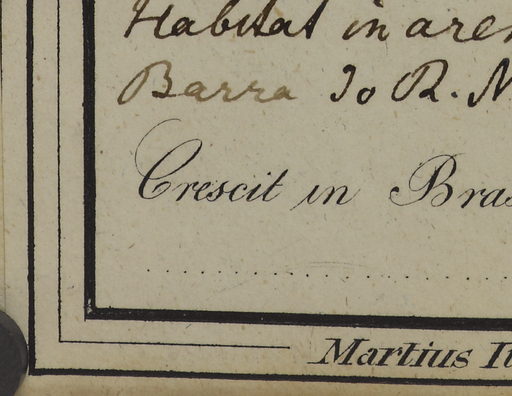 Habitat in aren
Barra do R. N
Crescit in Bras
Martius It